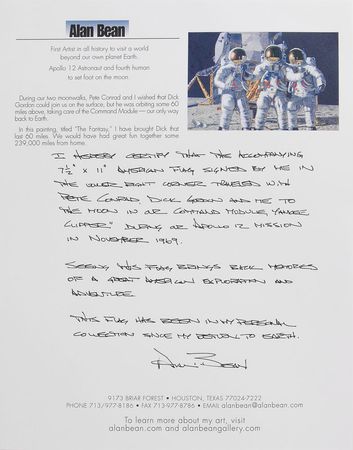 Alan Bean
First Artist in all history to visit a world
beyond our own planet Earth.
Apollo 12 Astronaut and fourth human
to set foot on the moon.
During our two moonwalks, Pete Conrad and I wished that Dick
Gordon could join us on the surface, but he was orbiting some 60
miles above, taking care of the Command Module — our only way
back to Earth.
In this painting, titled "The Fantasy," I have brought Dick that
last 60 miles. We would have had great fun together some
239,000 miles from home.
I HEREBY CERTIFY THAT THE ACCOMPANYING
7½" X 11" AMERICAN FLAG SIGNED BY ME IN
THE LOWER RIGHT CORNER TRAVELED WITH
PETE CONRAD, DICK GORDON AND ME TO
THE MOON IN OUR COMMAND MODULE, "YANKEE
CLIPPER" DURING OUR APOLLO 12 MISSION
IN NOVEMBER 1969.
SEEING THIS FLAG BRINGS BACK MEMORIES
OF A GREAT AMERICAN EXPLORATION AND
ADVENTURE
THIS FLAG HAS BEEN IN MY PERSONAL
COLLECTION SINCE MY RETURN TO EARTH.
Alan Bean
9173 BRIAR FOREST • HOUSTON, TEXAS 77024-7222
PHONE 713/977-8186 • FAX 713-977-8786 • EMAIL alanbean@alanbean.com
To learn more about my art, visit
alanbean.com and alanbeangallery.com